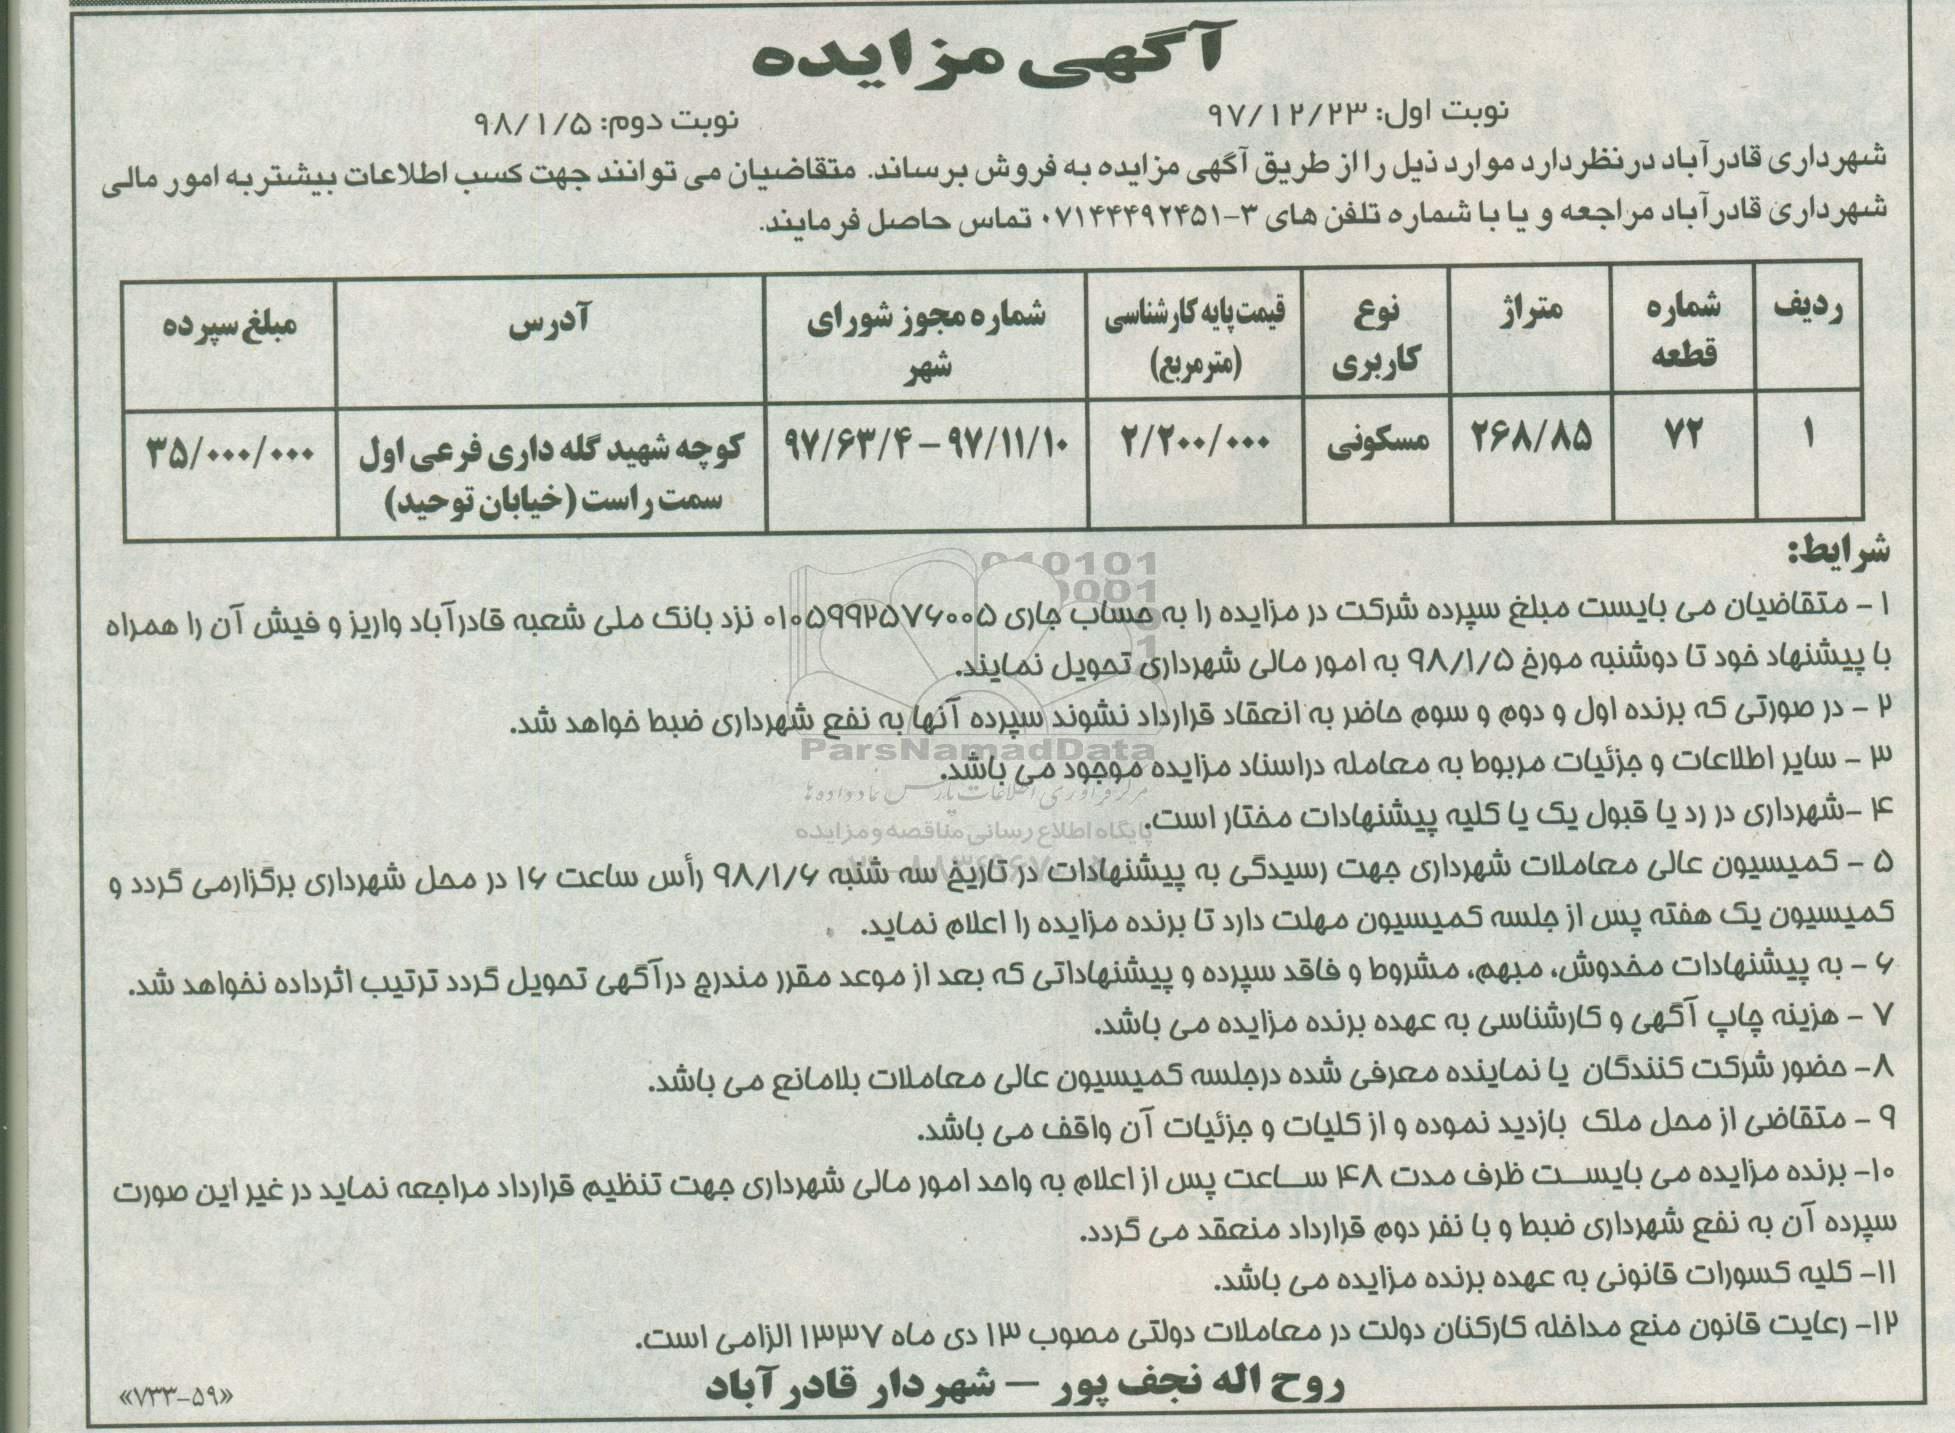 آگهی مزایده
نوبت اول: ۹۷/۱۲/۲۳
نوبت دوم: ۹۸/۱/۵
شهرداری قادرآباد درنظردارد موارد ذیل را از طریق آگهی مزایده به فروش برساند. متقاضیان می توانند جهت کسب اطلاعات بیشتر به امور مالی
شهرداری قادرآباد مراجعه و یا با شماره تلفن های ۳-۰۷۱۴۴۴۹۲۴۵۱ تماس حاصل فرمایند.
ردیف شماره قطعه متراژ نوع کاربری قیمت پایه کارشناسی (مترمربع) شماره مجوز شورای شهر آدرس مبلغ سپرده
۱ ۷۲ ۲۶۸/۸۵ مسکونی ۲/۲۰۰/۰۰۰ ۹۷/۱۱/۱۰ – ۹۷/۶۳/۴ کوچه شهید گله داری فرعی اول سمت راست (خیابان توحید) ۳۵/۰۰۰/۰۰۰
شرایط:
۱ - متقاضیان می بایست مبلغ سپرده شرکت در مزایده را به حساب جاری ۰۱۰۵۹۹۲۵۷۶۰۰۵ نزد بانک ملی شعبه قادرآباد واریز و فیش آن را همراه
با پیشنهاد خود تا دوشنبه مورخ ۹۸/۱/۵ به امور مالی شهرداری تحویل نمایند.
۲ - در صورتی که برنده اول و دوم و سوم حاضر به انعقاد قرارداد نشوند سپرده آنها به نفع شهرداری ضبط خواهد شد.
۳ - سایر اطلاعات و جزئیات مربوط به معامله دراسناد مزایده موجود می باشد.
۴ -شهرداری در رد یا قبول یک یا کلیه پیشنهادات مختار است.
۵ - کمیسیون عالی معاملات شهرداری جهت رسیدگی به پیشنهادات در تاریخ سه شنبه ۹۸/۱/۶ رأس ساعت ۱۶ در محل شهرداری برگزارمی گردد و
کمیسیون یک هفته پس از جلسه کمیسیون مهلت دارد تا برنده مزایده را اعلام نماید.
۶ - به پیشنهادات مخدوش، مبهم، مشروط و فاقد سپرده و پیشنهاداتی که بعد از موعد مقرر مندرج درآگهی تحویل گردد ترتیب اثرداده نخواهد شد.
۷ - هزینه چاپ آگهی و کارشناسی به عهده برنده مزایده می باشد.
۸- حضور شرکت کنندگان یا نماینده معرفی شده درجلسه کمیسیون عالی معاملات بلامانع می باشد.
۹ - متقاضی از محل ملک بازدید نموده و از کلیات و جزئیات آن واقف می باشد.
۱۰- برنده مزایده می بایست ظرف مدت ۴۸ ساعت پس از اعلام به واحد امور مالی شهرداری جهت تنظیم قرارداد مراجعه نماید در غیر این صورت
سپرده آن به نفع شهرداری ضبط و با نفر دوم قرارداد منعقد می گردد.
۱۱- کلیه کسورات قانونی به عهده برنده مزایده می باشد.
۱۲- رعایت قانون منع مداخله کارکنان دولت در معاملات دولتی مصوب ۱۳ دی ماه ۱۳۳۷ الزامی است.
روح اله نجف پور – شهردار قادرآباد
«۷۳۳-۵۹»
ParsNamadData
مرکز فرآوری اطلاعات پارس نماد داده ها
پایگاه اطلاع رسانی مناقصه و مزایده